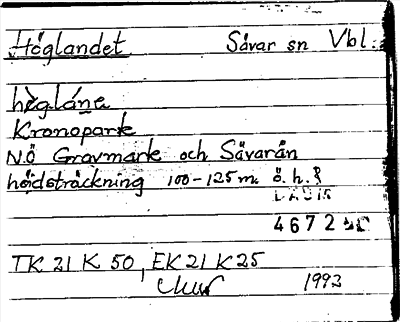 Höglandet Sävar sn Vbl.
högláne
Kronopark
N.Ö Gravmark och Sävarån
höjdsträckning 100-125 m. ö. h.
4672
TK 21 K 50, EK 21 K 25
1992